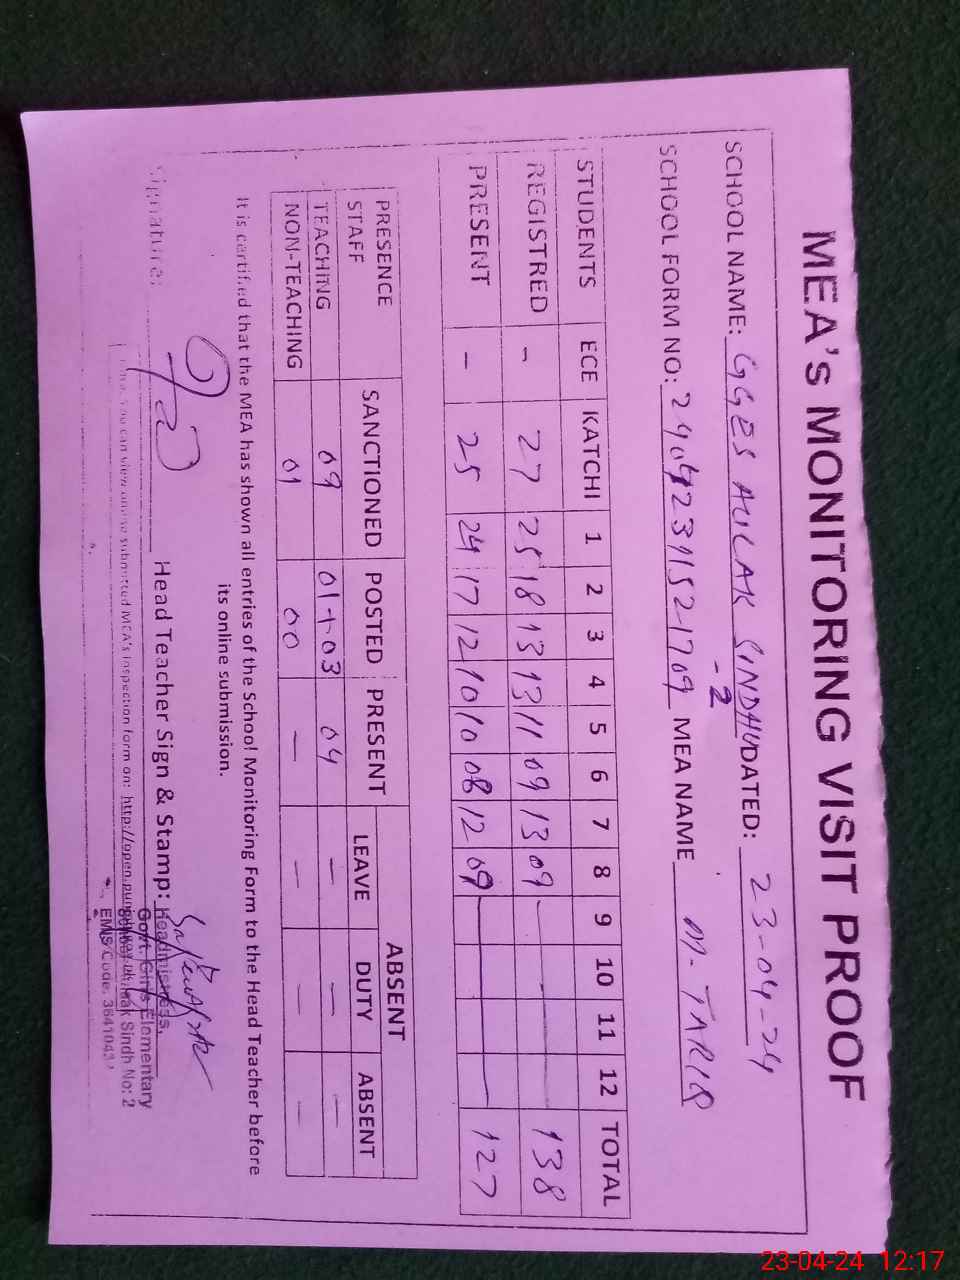 MEA's MONITORING VISIT PROOF
SCHOOL NAME: GGES AULAK SINDHU -2 DATED: 23-04-24
SCHOOL FORM NO: MEA NAME M. TARIQ
STUDENTS ECE KATCHI 1 2 3 4 5 6 7 8 9 10 11 12 TOTAL
REGISTRED - 27 25 18 13 13 11 09 13 09 138
PRESENT - 25 24 17 12 10 10 08 12 09 127
PRESENCE STAFF SANCTIONED POSTED PRESENT ABSENT
LEAVE DUTY ABSENT
TEACHING 09 01+03 04 — — —
NON-TEACHING 01 00 — — — —
It is certified that the MEA has shown all entries of the School Monitoring Form to the Head Teacher before
its online submission.
Signature: Head Teacher Sign & Stamp:
Headmistress,
Govt. Girls Elementary
Sindh No: 2
EMIS Code:
You can view online submitted MEA's inspection form on: http://open.punjab
23-04-24 12:17